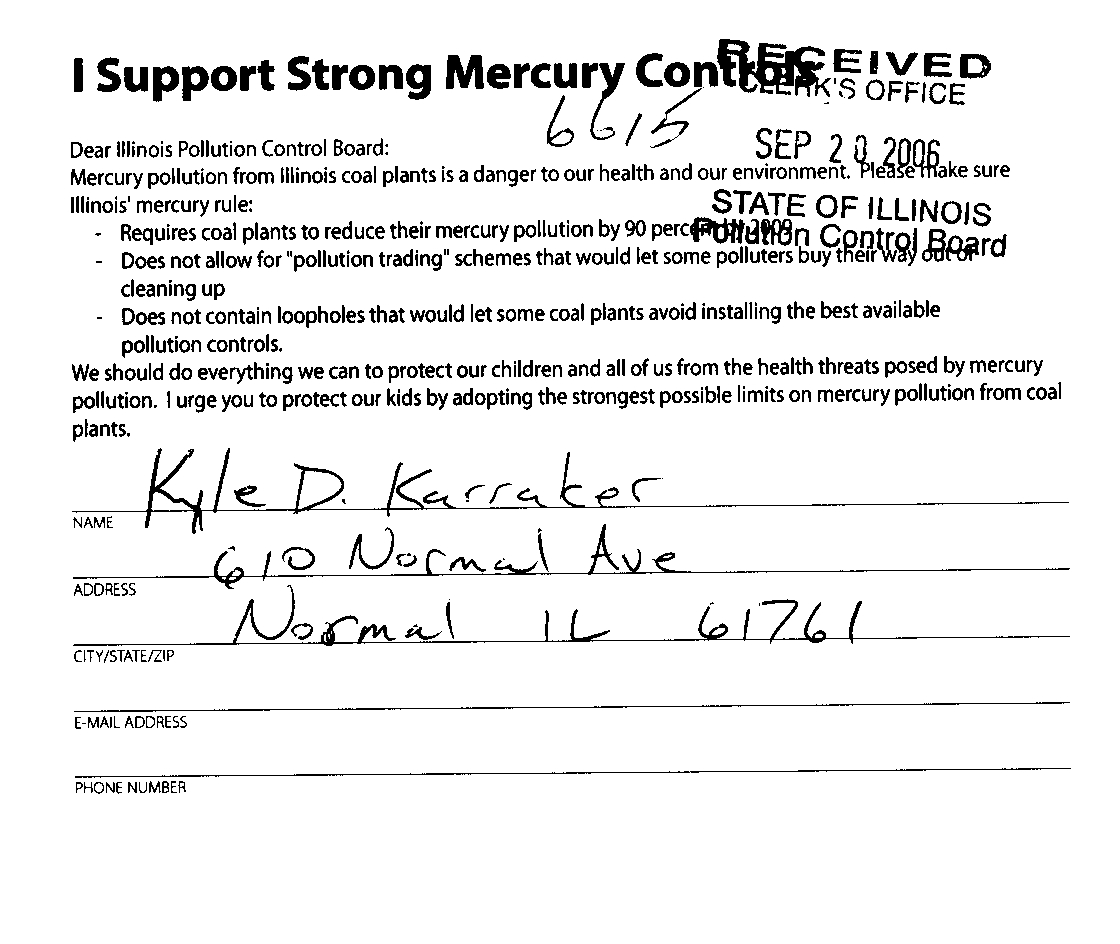 I Support Strong Mercury Controls
RECEIVED
CLERK'S OFFICE
6615
SEP 20 2006
Dear Illinois Pollution Control Board:
Mercury pollution from Illinois coal plants is a danger to our health and our environment. Please make sure
Illinois' mercury rule:
STATE OF ILLINOIS
Pollution Control Board
- Requires coal plants to reduce their mercury pollution by 90 percent by 2009
- Does not allow for "pollution trading" schemes that would let some polluters buy their way out of
cleaning up
- Does not contain loopholes that would let some coal plants avoid installing the best available
pollution controls.
We should do everything we can to protect our children and all of us from the health threats posed by mercury
pollution. I urge you to protect our kids by adopting the strongest possible limits on mercury pollution from coal
plants.
Kyle D. Karraker
NAME
610 Normal Ave
ADDRESS
Normal IL 61761
CITY/STATE/ZIP
E-MAIL ADDRESS
PHONE NUMBER